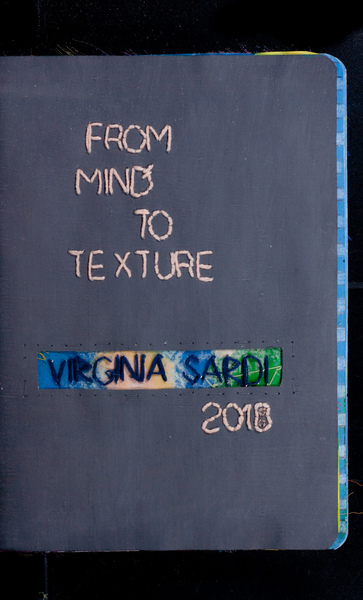 FROM
MIND
TO
TEXTURE
VIRGINIA SARDI
2018